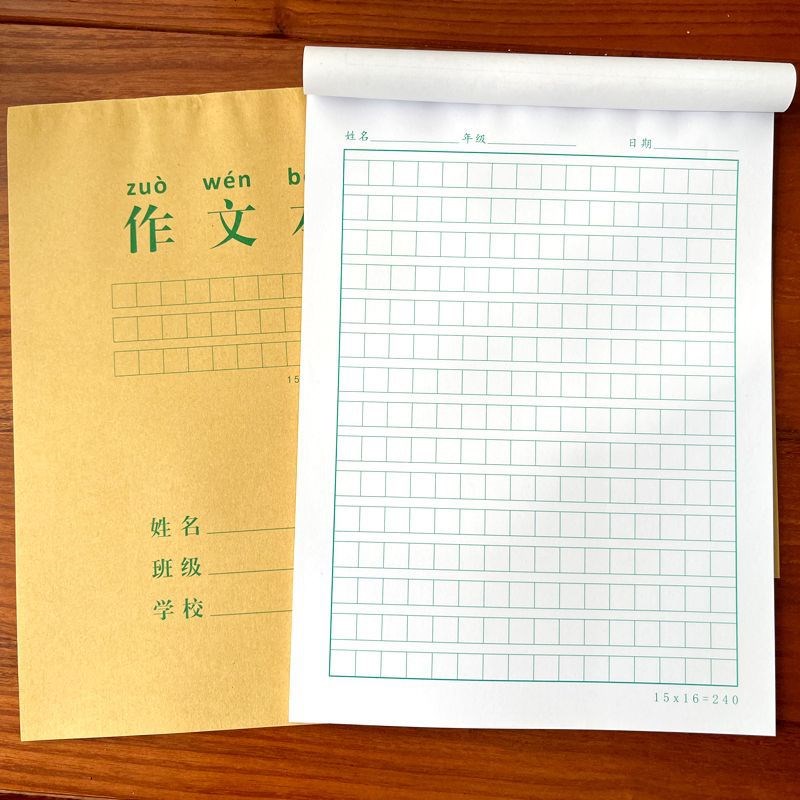 zuò wén
作文
15
姓名
班级
学校
姓名 年级 日期
15x16=240